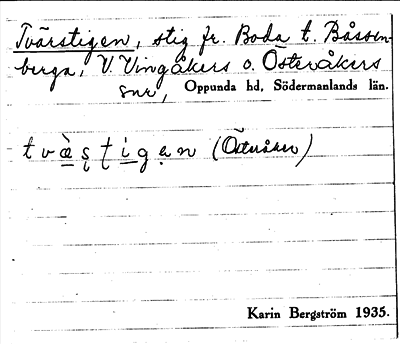 Tvärstigen, stig fr. Boda t. Båssen-
berga, V. Vingåkers o. Österåkers
snr, Oppunda hd, Södermanlands län.
tvæ̀ştigẹn (Österåker)
Karin Bergström 1935.